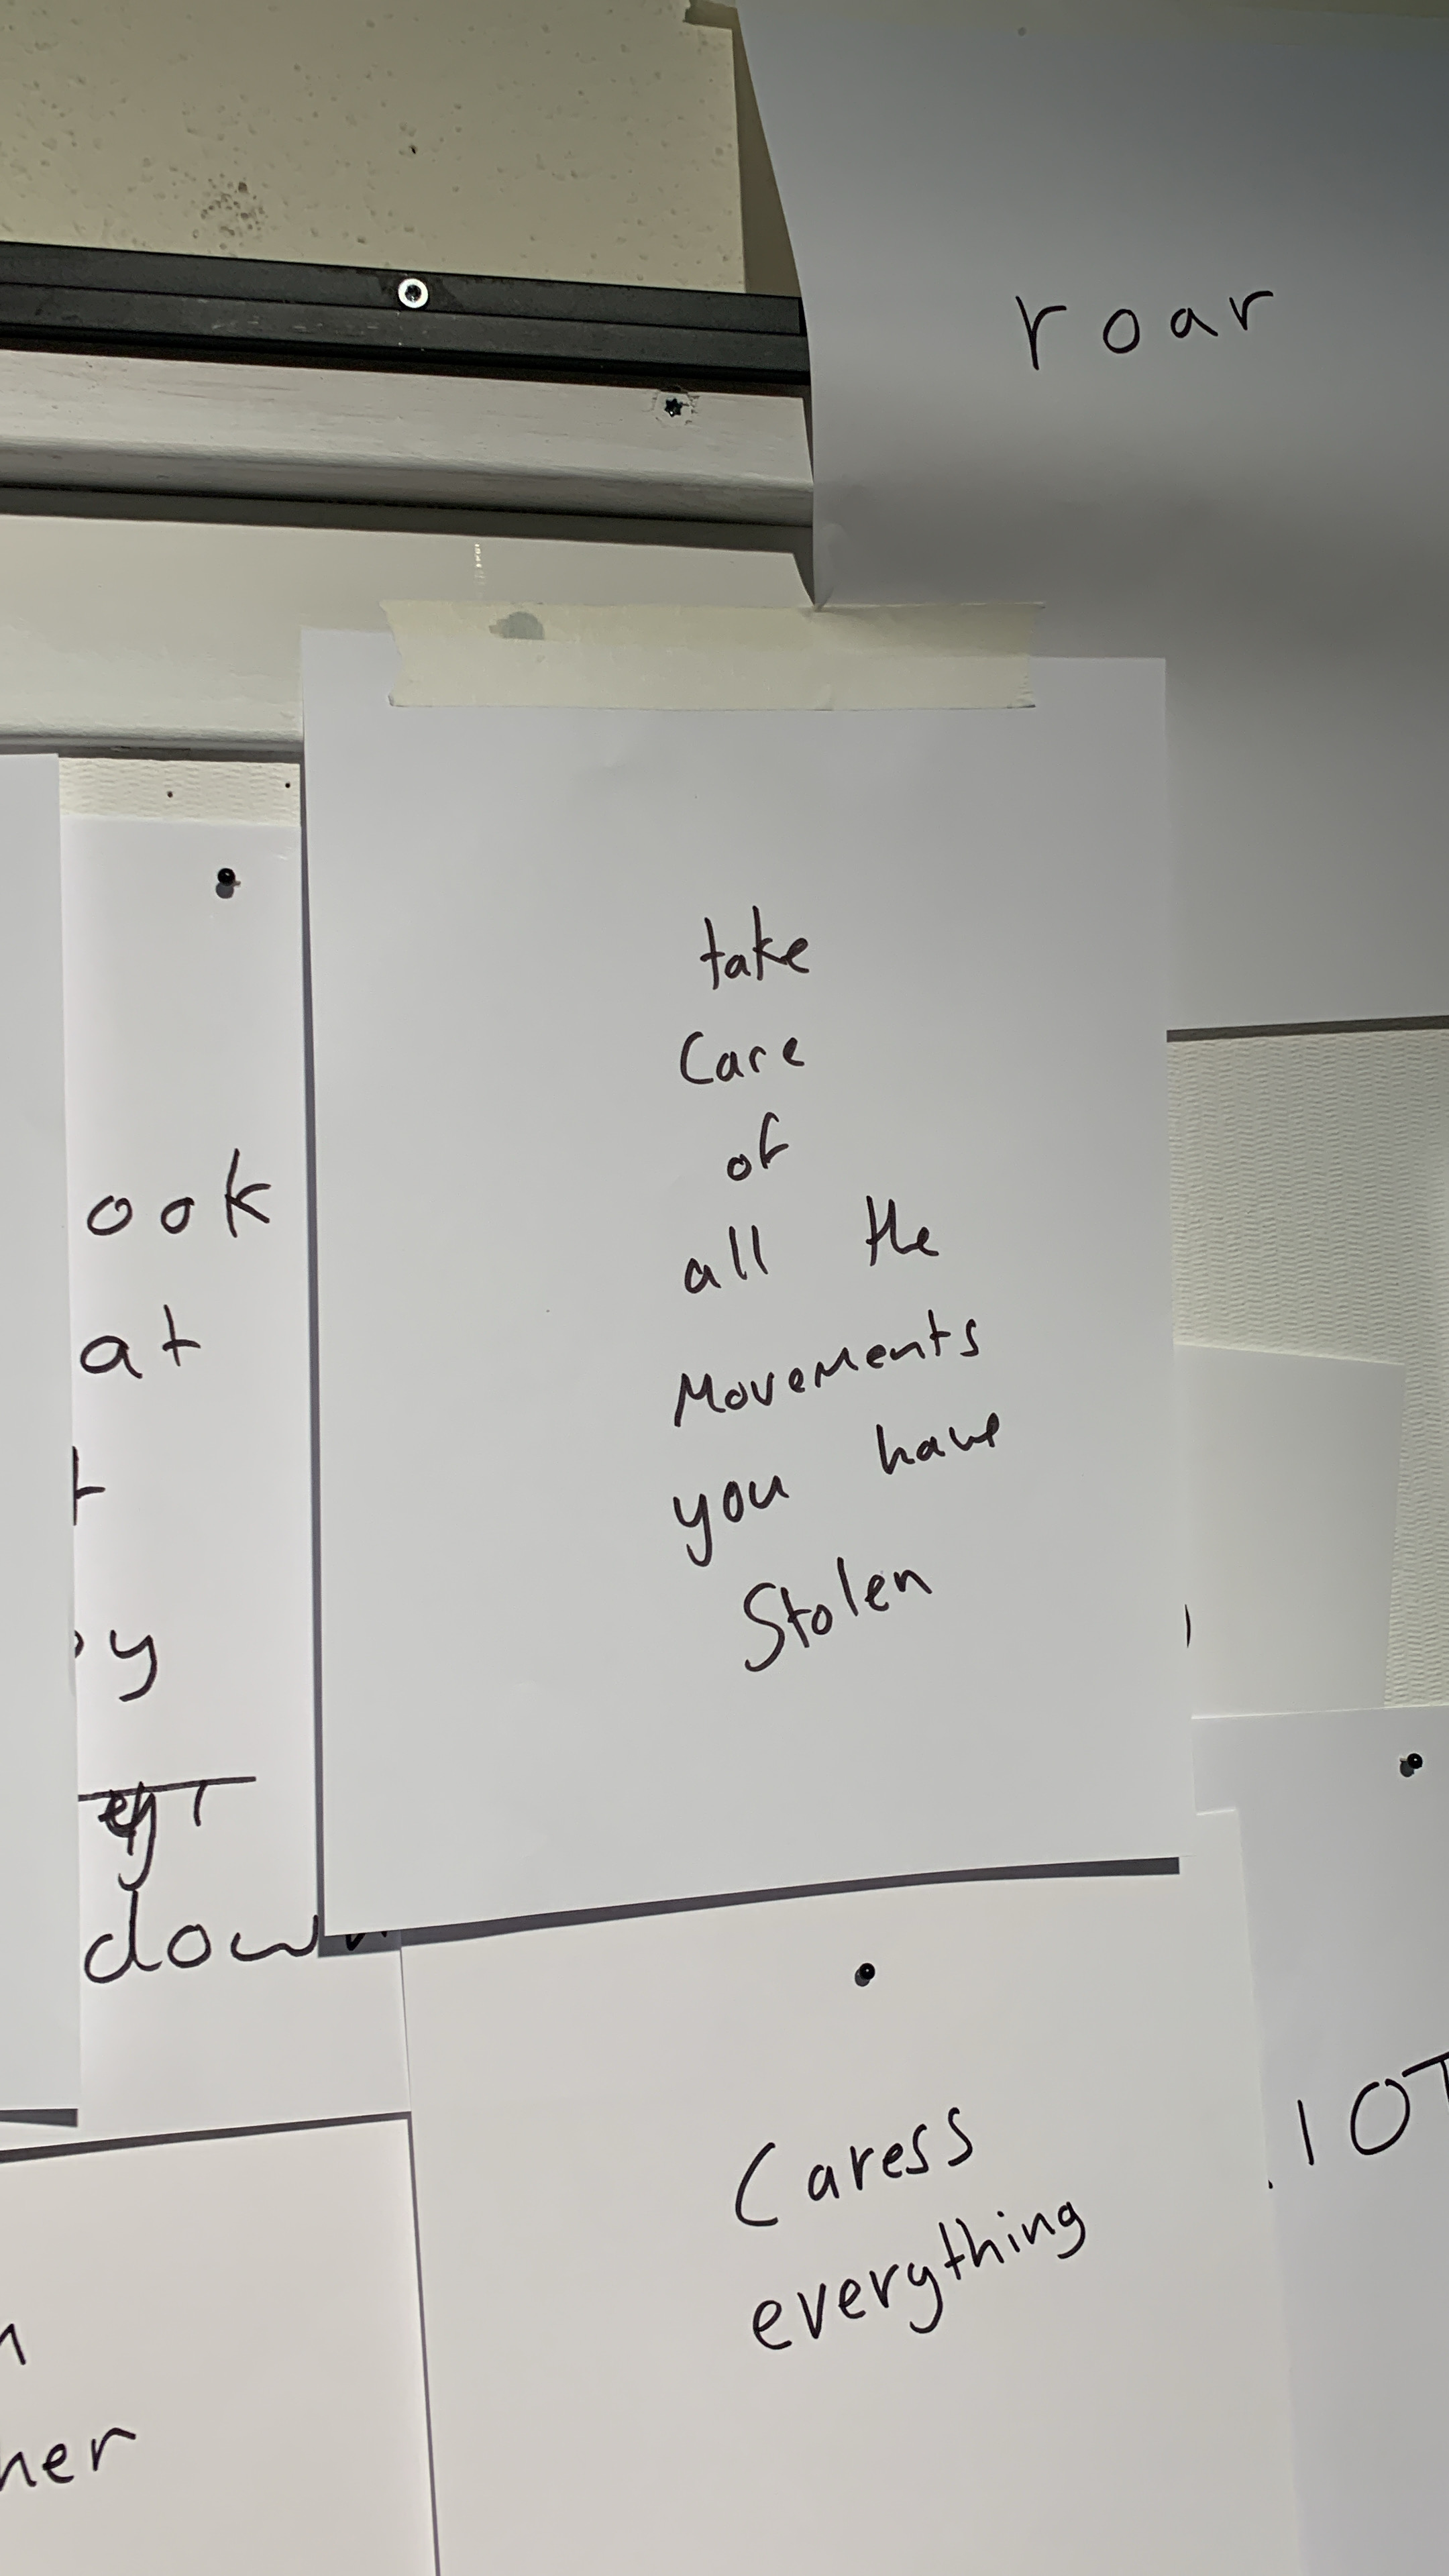 roar
take
Care
of
all the
Movements
you have
Stolen
ook
at
down
Caress
everything
her